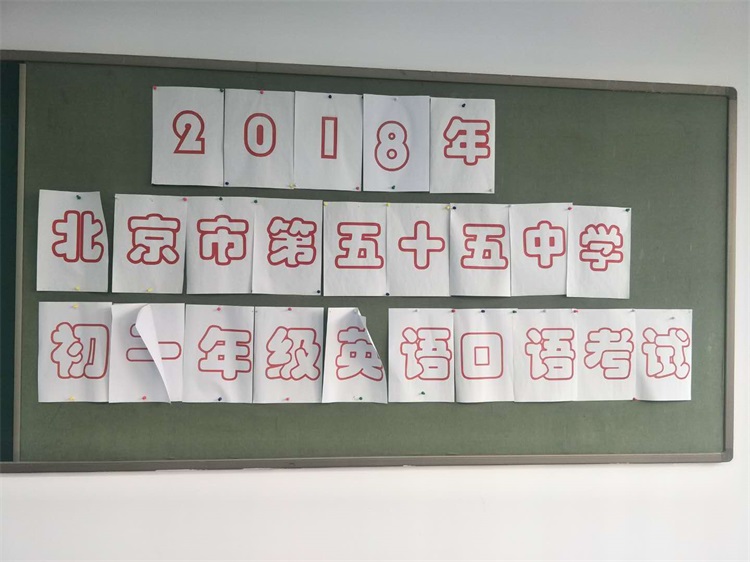 2018年
北京市第五十五中学
初二年级英语口语考试